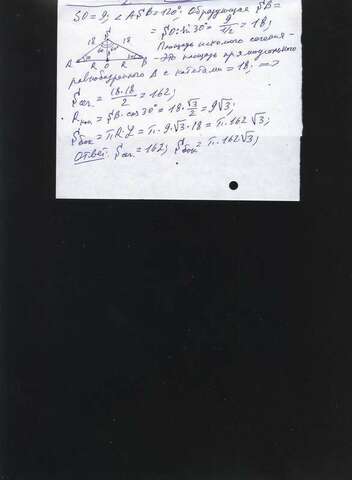 SO = 9; ∠ ASB = 120°. Образующая SB =
= SO : sin 30° = 9/(1/2) = 18;
Площадь искомого сечения -
- это площадь прямоугольного
равнобедренного Δ с катетами = 18; =>
S сеч. = (18·18)/2 = 162;
R кон = SB · cos 30° = 18 · √3/2 = 9√3;
S бок = π R L = π · 9 · √3 · 18 = π · 162 √3;
Ответ: S сеч. = 162; S бок = π · 162 √3;
S
18 60° 60° 18
9
A 30° R O R 30° B